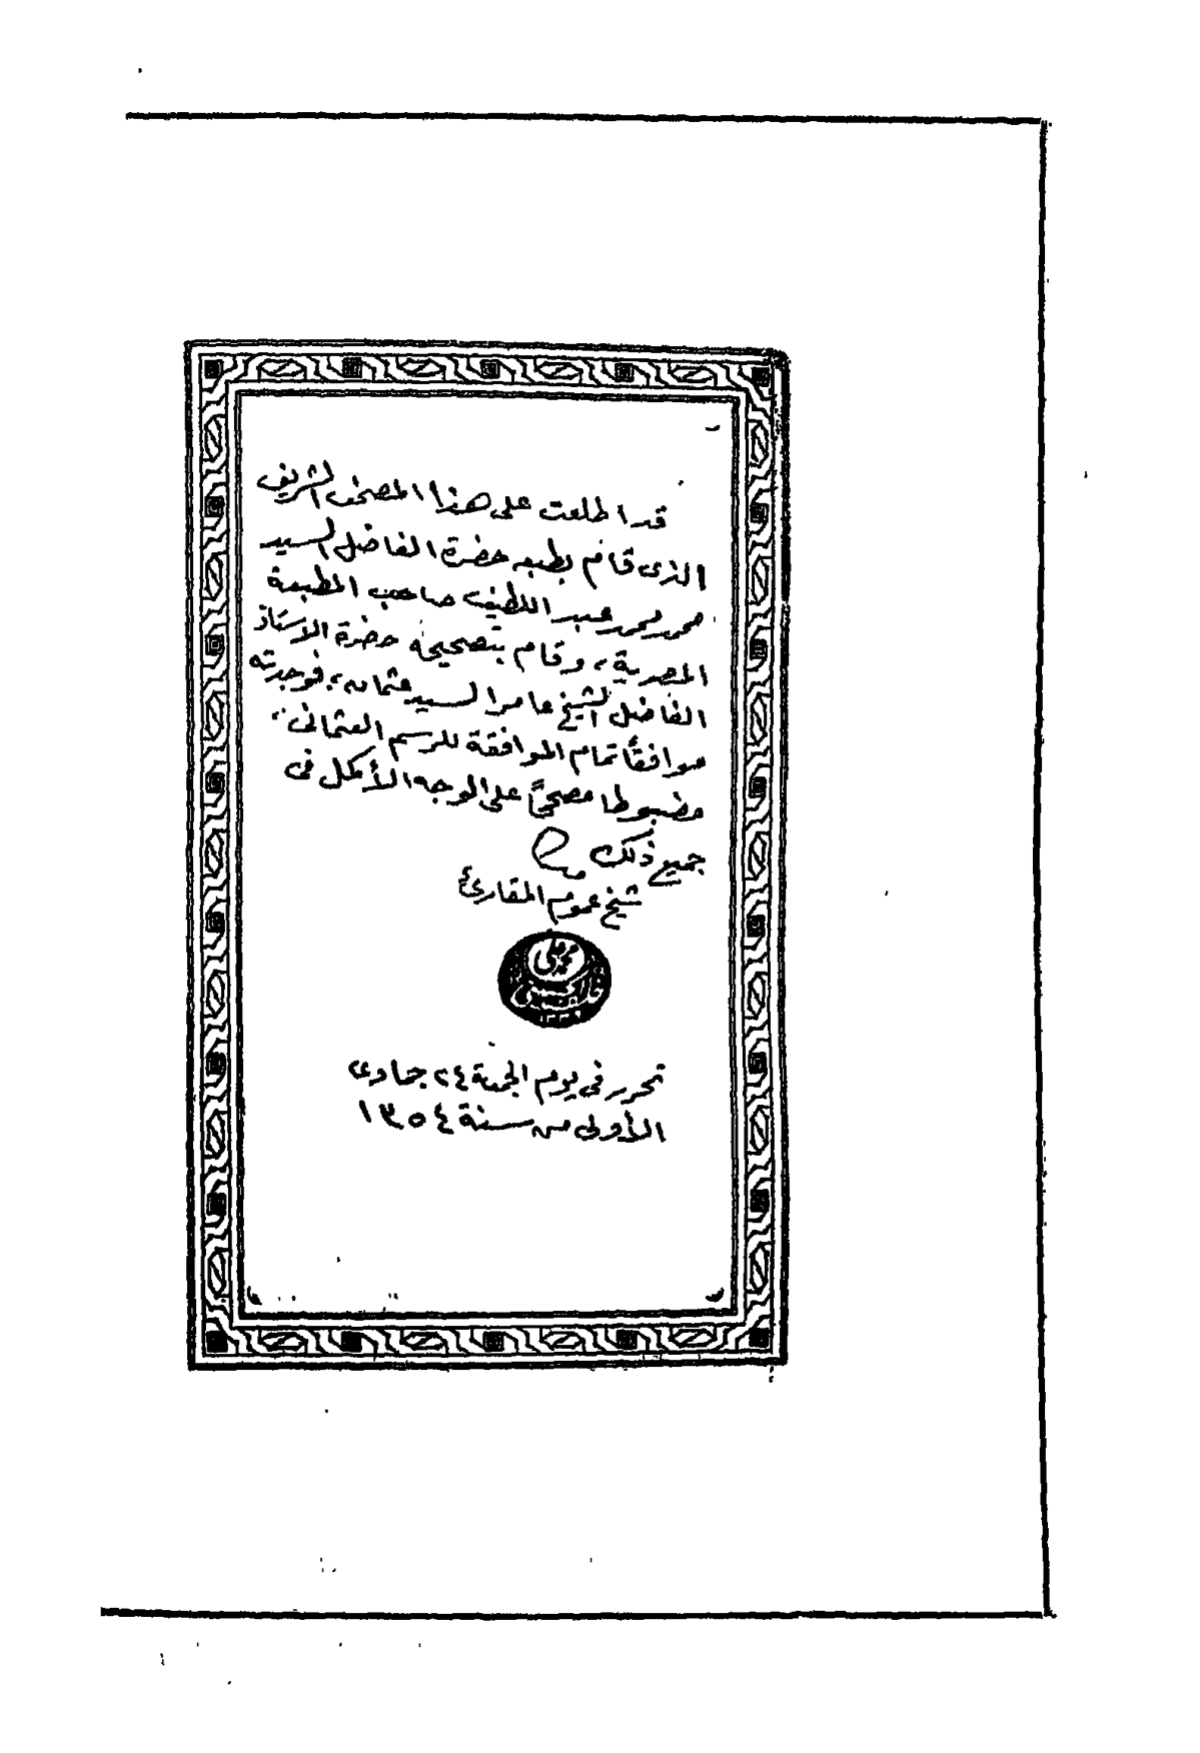 قد اطلعت على هذا المصحف الشريف
الذى قام بطبعه حضرة الفاضل السيد
محمد محمد عبد اللطيف صاحب المطبعة
المصرية، وقام بتصحيحه حضرة الأستاذ
الفاضل الشيخ عامر السيد عثمان، فوجدته
موافقاً تمام الموافقة للرسم العثمانى
مضبوطا مصححاً على الوجه الأكمل فى
جميع ذلك
شيخ عموم المقارئ
محمد على
تحرر فى يوم الجمعة ٢٤ جمادى
الأولى من سنة ١٣٥٤